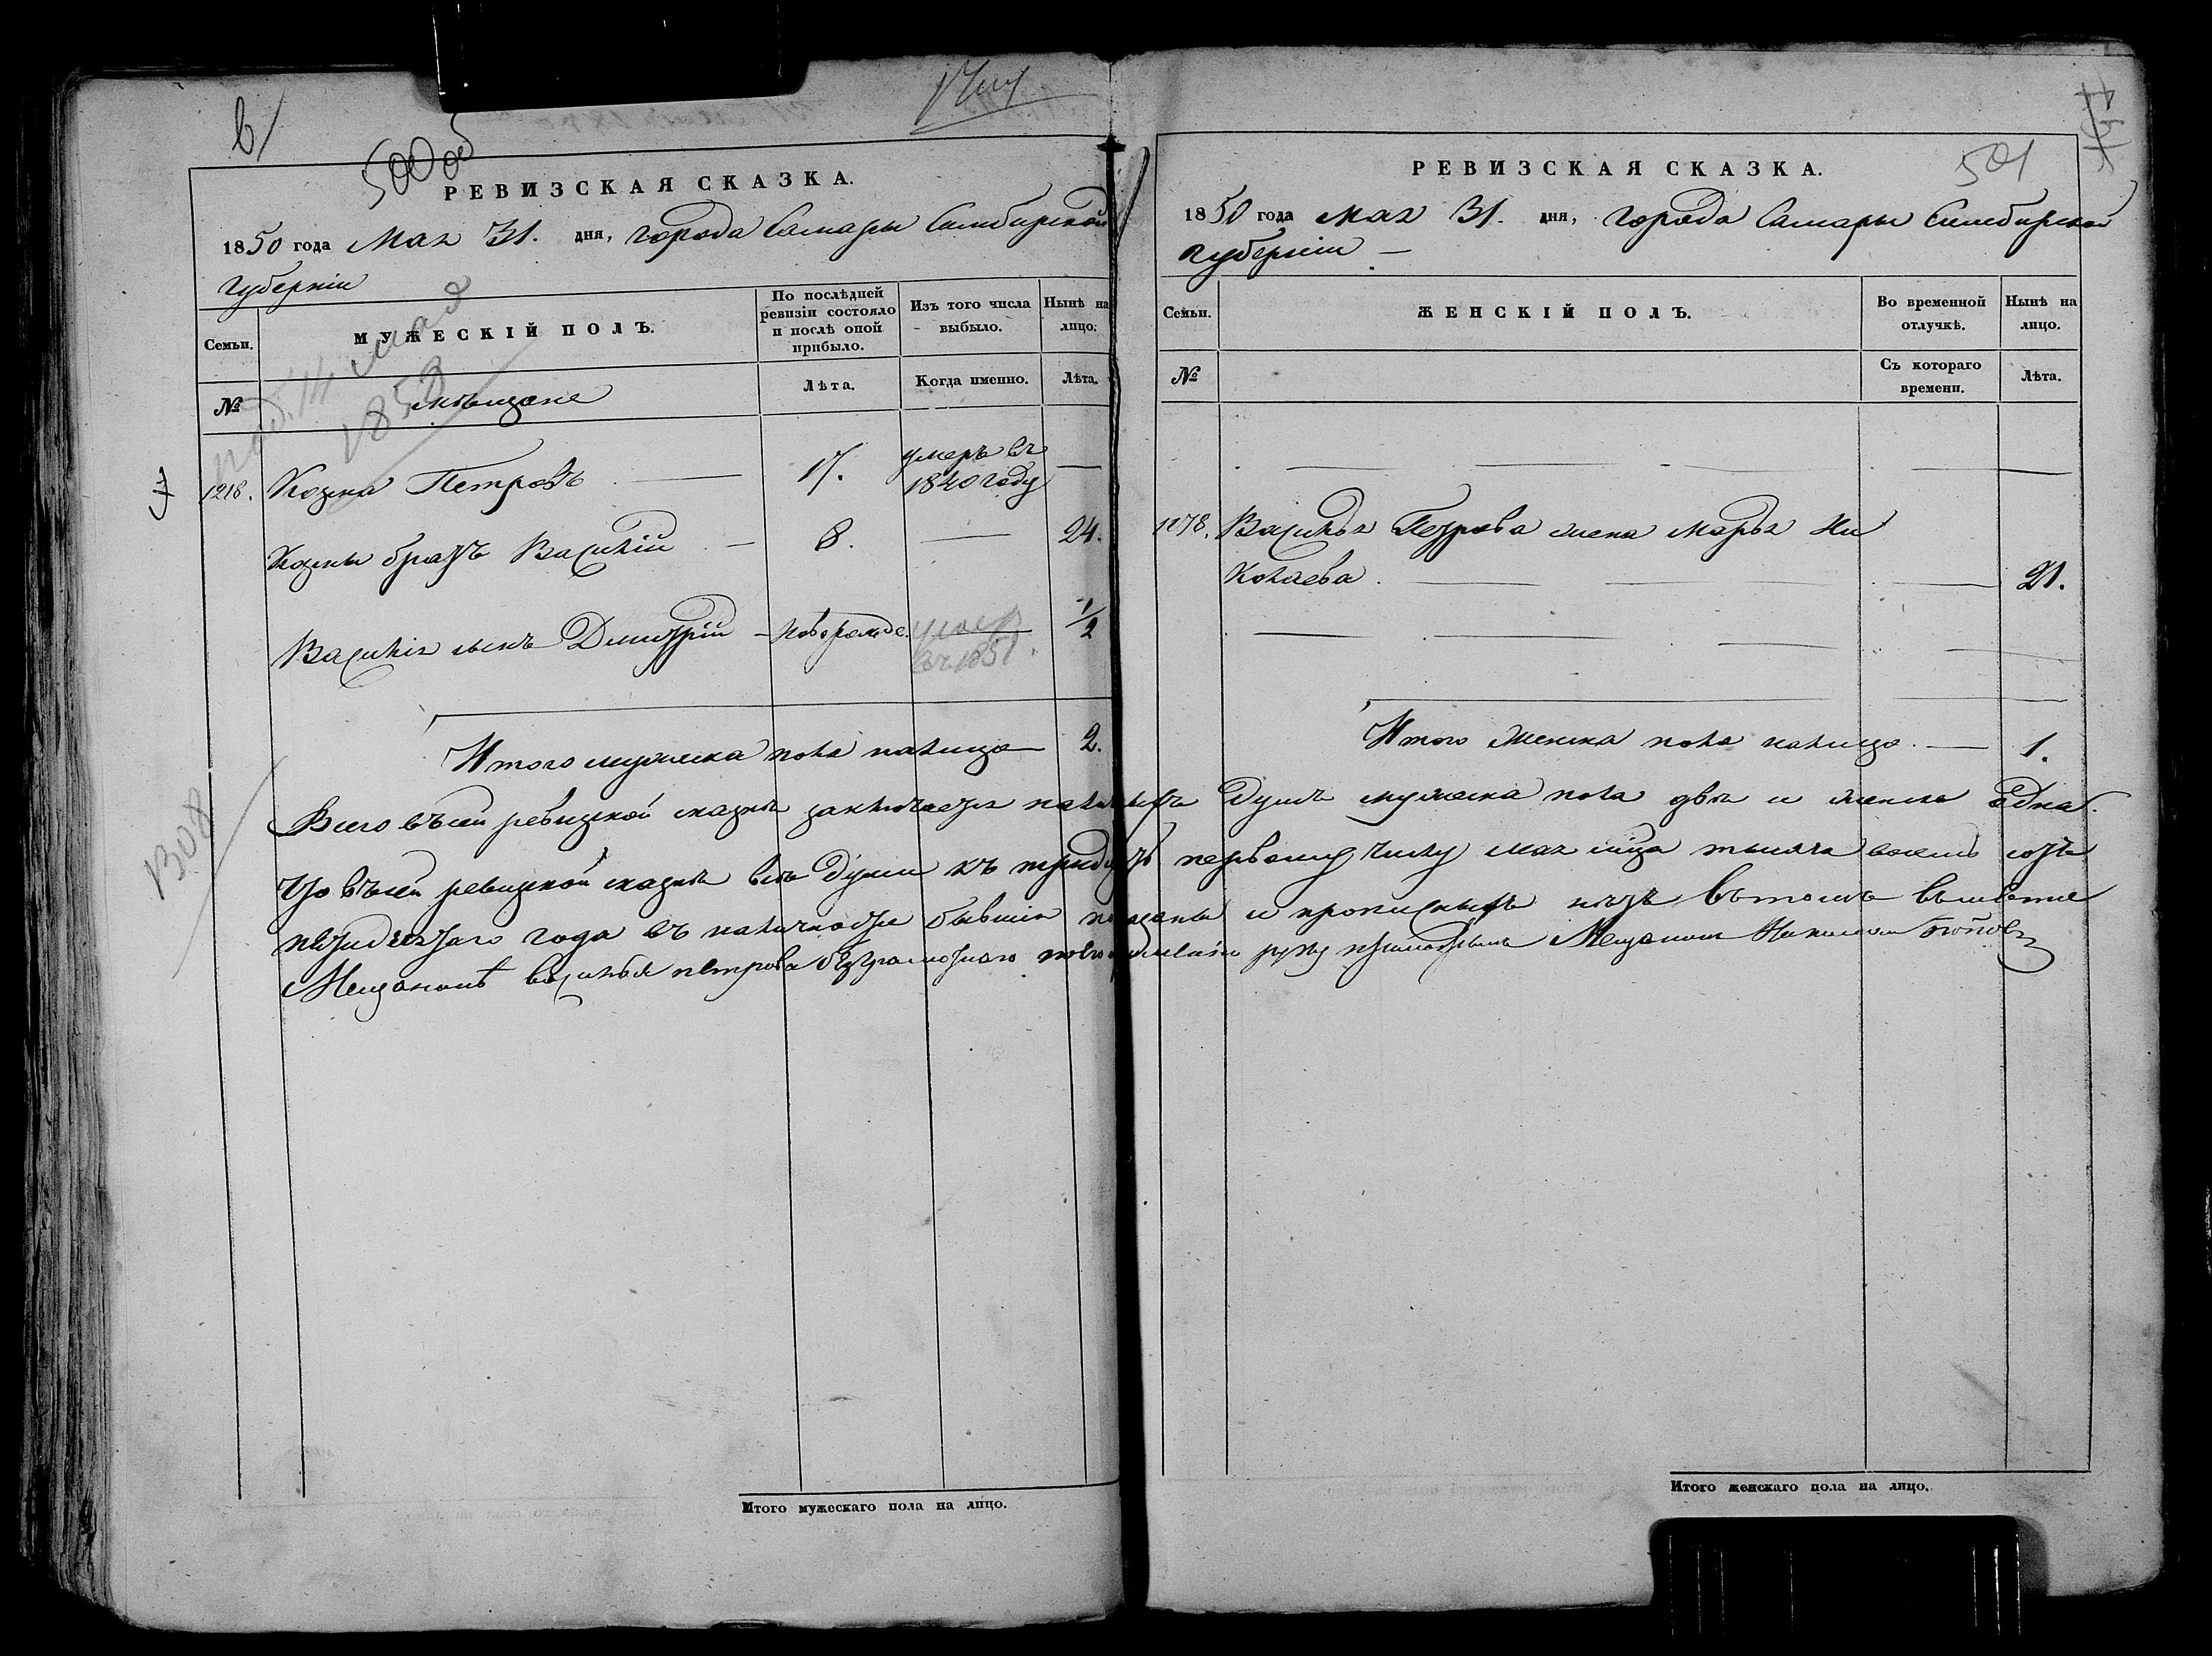 500 об
РЕВИЗСКАЯ СКАЗКА.
1850 года Мая 31. дня, города Самары Симбирской
губерніи
Семьи.
МУЖЕСКІЙ ПОЛЪ.
По послѣдней ревизіи состояло и послѣ оной прибыло.
Изъ того числа выбыло.
Нынѣ на лицо.
№
мѣщане
Лѣта.
Когда именно.
Лѣта.
14 мая
1850
1218. Козма Петровъ — 17. умеръ въ 1840 году —
Козмы братъ Василій — 8. — 24.
Василія сынъ Дмитрій — новорожде. умер въ 1851. 1/2
Итого мужеска пола налицо 2.
1308
Итого мужескаго пола на лицо.
501
РЕВИЗСКАЯ СКАЗКА.
1850 года Мая 31. дня, города Самары Симбирской
губерніи —
Семьи.
ЖЕНСКІЙ ПОЛЪ.
Во временной отлучкѣ.
Нынѣ на лицо.
№
Съ котораго времени.
Лѣта.
Василья Петрова жена Марья Ни
колаева. — 21.
Итого женска пола налицо. — 1.
Всего въ сей ревизской сказке заключается наличныхъ душъ мужеска пола две и женска одна.
Что в сей ревизской сказке все души къ тридцать первому числу мая мца тысяча восемь сотъ
пятидесятаго года въ наличности бывшiя показаны и прописныхъ нетъ въ томъ вместо
Мещанина василья петрова безграмотнаго по его прошению руку приложилъ Мещанинъ
Итого женскаго пола на лицо.